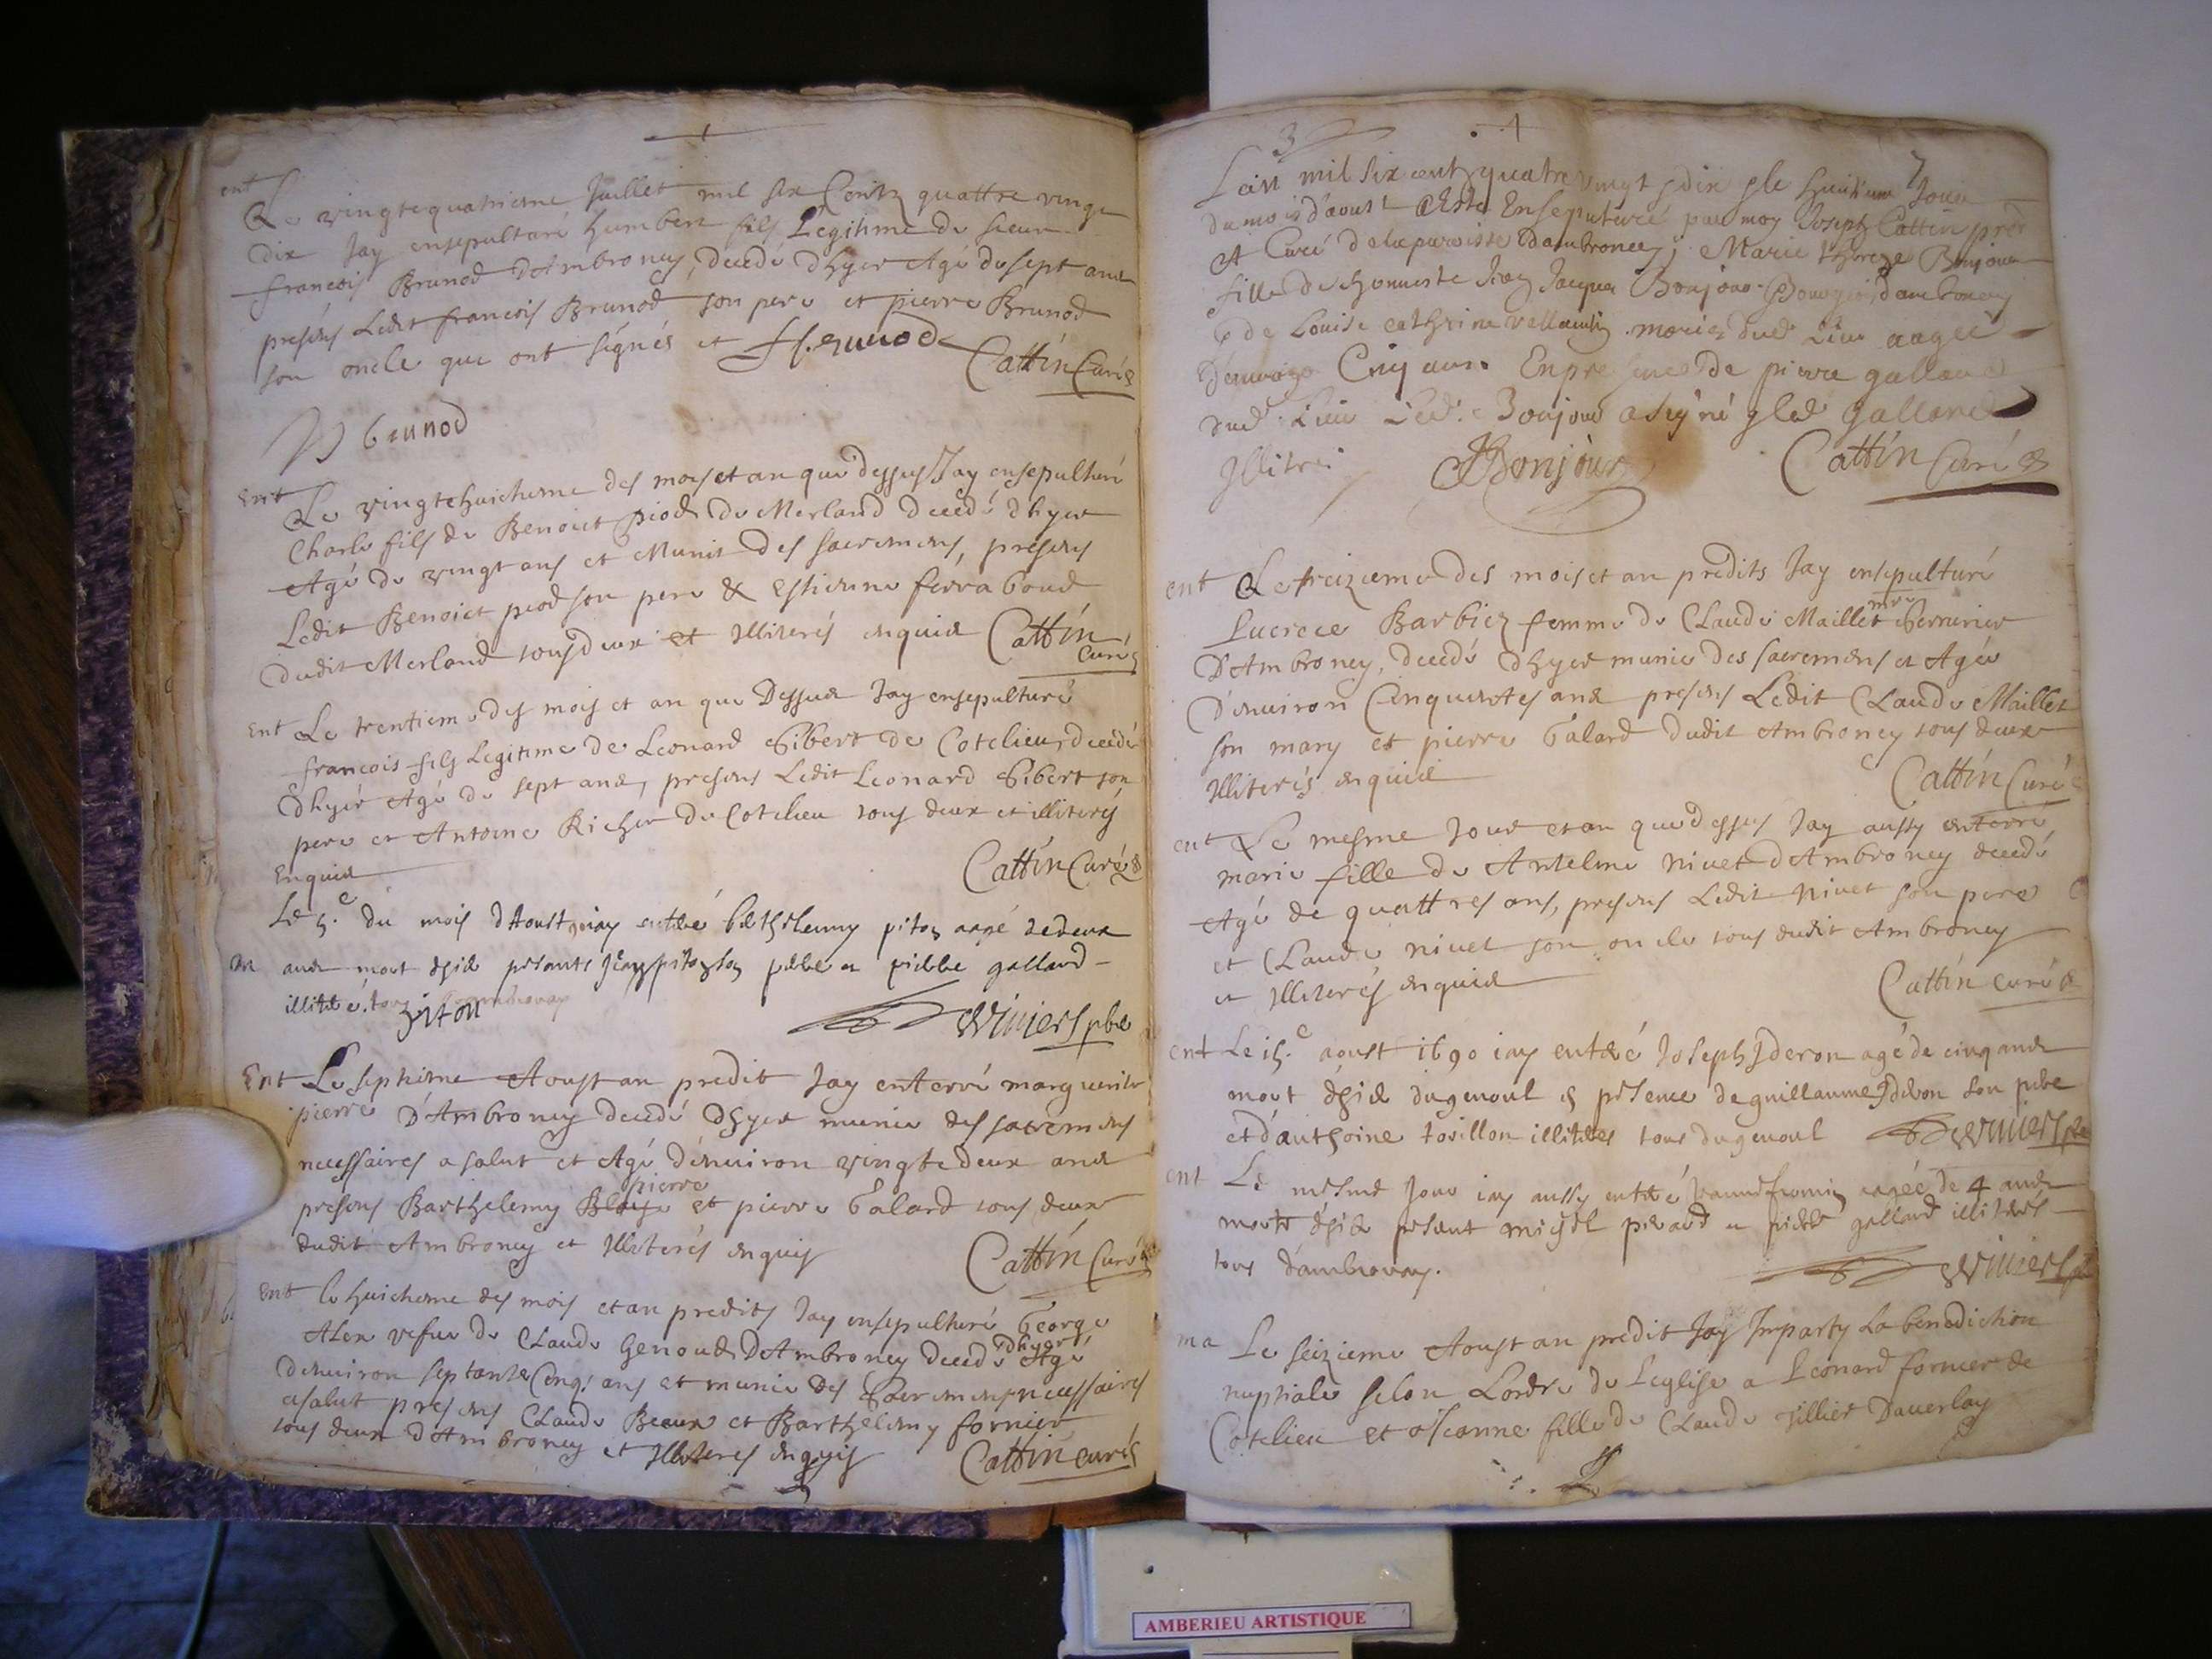 ent
Le vingtequatriesme Juillet mil six Centz quattre vingt
dix Jay ensepulturé humbert fils Légitime du sieur
francois Brunod D'Ambroney, decedé dhyer Agé de sept ans
presens Ledit francois Brunod son pere et pierre Brunod
son oncle qui ont signés et
Cattin Curé
brunod
Ent Le vingtehuictiesme des mois et an que dessus Jay ensepulturé
Charle fils de Benoict piod du Merland decedé dhyer
Agé de vingt ans et Munit des sacremens, presens
Ledit Benoict piod son pere & Estienne ferra boud
dudit Merland tous deux et Illiterés enquis Cattin
Curé
Ent Le trentieme des mois et an que Dessus Jay ensepulturé
francois fils Legitime de Leonard Gibert de Cotelieu, decedé
dhyer Agé de sept ans, presens Ledit Leonard Gibert son
pere et Antoine Richer de Cotelieu tous deux et illiterés
Enquis
Cattin Curé
Le 5.e du mois d'Aoust iay enterré piton aagé de deux
ans mort hier presants piton son pere et pierre galland
illiteré
piton
Viviers pbre
Ent Le septiesme Aoust an predit Jay enterré marguerite
pierre D'Ambroney decedé dhyer munie des sacremens
necessaires a salut et Agé d'enuiron vingte deux ans
pierre
presens Barthelemy et pierre Galard tous deux
dudit Ambroney et Illiterés enquis
Cattin Curé
Ent le huictiesme des mois et an predits Jay ensepulturé George
Alex vefue de Claude Genoud D'Ambroney decedé dhyer Agé
denuiron septante Cinq ans et munie des Sacremens necessaires
asalut presens Claude Beaux et Barthelemy fornier
tous deux d'Ambroney et Illiteres enquis
Cattin curé
3
7
Lan mil six cent quatre vingt dix & le huitieme Jour
du mois d'aoust a Esté Ensepulturée par moy Joseph Cattin pretre
et Curé de la paroisse dambroney, Marie Thereze Bonjour
fille de honneste Jacque Bonjour Bourgeois dambroney
& de Louise catherine mariez dud Lieu aagée
denuiron Cinq ans. En presence de pierre galland
dud Lieu Led. Bonjour a signé & led galland
Illitré
Bonjour
Cattin Curé
ent Le treizieme des mois et an predits Jay ensepulturé
Lucrece Barbier femme de Claude Maillet
D'Ambroney, decedé dhyer munie des sacremens et Agée
D'enuiron Cinquantes ans presens Ledit Claude Maillet
son mary et pierre Galard dudit Ambroney tous deux
Illiterés enquis
Cattin Curé
ent Le mesme Jour et an que dessus Jay aussy enterré
marie fille de Antelme nivet d'Ambroney decedé
Agé de quattres ans, presens Ledit nivet son pere
et Claude nivet son oncle tous dudit Ambroney
et Illiterés enquis
Cattin curé
ent Le 15.e aoust 1690 iay enterré Joseph Jderon agé de cinq ans
mort hier en presence de guillaume Jderon son pere
et d'anthoine tovillon illiteres tous
Viviers pbre
ent Le mesme Jour iay aussy enterré aagée de 4 ans
morte hier presant michel et pierre galland illiterés
tous d'ambronay.
Viviers pbre
ma Le seizieme Aoust an predit Jay Imparty La benediction
nuptiale selon Lordre de Leglise a Leonard fornier de
Cotelieu et a Jeanne fille de Claude Jillier
AMBERIEU ARTISTIQUE